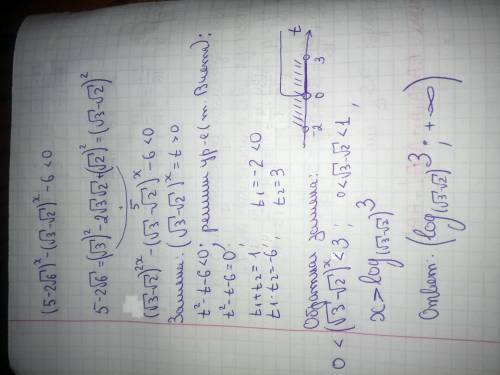 (5-2√6)ˣ-(√3-√2)ˣ-6<0
5-2√6=(√3)²-2√3√2+(√2)²=(√3-√2)²
5
(√3-√2)²ˣ-(√3-√2)ˣ-6<0
Замена: (√3-√2)ˣ=t>0
t²-t-6<0;
t²-t-6=0; решим ур-е (т. Виета):
t₁+t₂=1; t₁=-2<0
t₁·t₂=-6; t₂=3
-2 0 3 t
Обратная замена:
0<(√3-√2)ˣ<3; 0<√3-√2<1,
x>log₍√3-√2₎3
Ответ: (log₍√3-√2₎3; +∞)